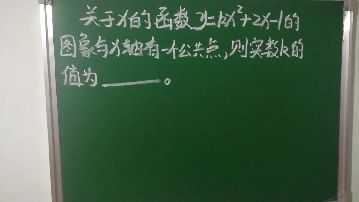 关于x的函数y=kx²+2x-1的
图象与x轴有一个公共点,则实数k的
值为______。